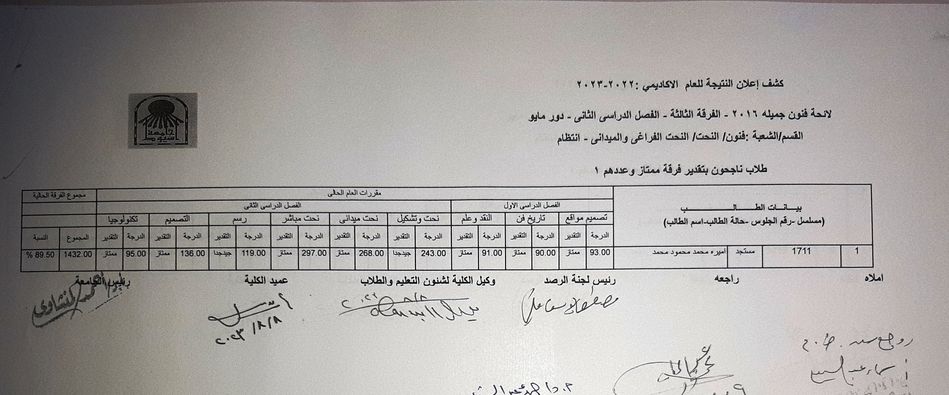 كشف إعلان النتيجة للعام الاكاديمي :٢٠٢٢-٢٠٢٣
لائحة فنون جميله ٢٠١٦ - الفرقة الثالثة - الفصل الدراسى الثانى - دور مايو
القسم/الشعبة :فنون/ النحت/ النحت الفراغى والميدانى - انتظام
طلاب ناجحون بتقدير فرقة ممتاز وعددهم ١
بيـانـات الطـالـب مقررات العام الحالى مجموع الفرقة الحالية
(مسلسل -رقم الجلوس -حالة الطالب-اسم الطالب) الفصل الدراسى الاول الفصل الدراسى الثانى
تصميم مواقع تاريخ فن النقد وعلم نحت وتشكيل نحت ميدانى نحت مباشر رسم التصميم تكنولوجيا
الدرجة التقدير الدرجة التقدير الدرجة التقدير الدرجة التقدير الدرجة التقدير الدرجة التقدير الدرجة التقدير الدرجة التقدير الدرجة التقدير المجموع النسبة
1 1711 مستجد اميره محمد محمود محمد 93.00 ممتاز 90.00 ممتاز 91.00 ممتاز 243.00 جيدجدا 268.00 ممتاز 297.00 ممتاز 119.00 جيدجدا 136.00 ممتاز 95.00 ممتاز 1432.00 89.50 %
املاه راجعه رئيس لجنة الرصد وكيل الكلية لشئون التعليم والطلاب عميد الكلية رئيس الجامعة
٢٠٢٣/٨/٨